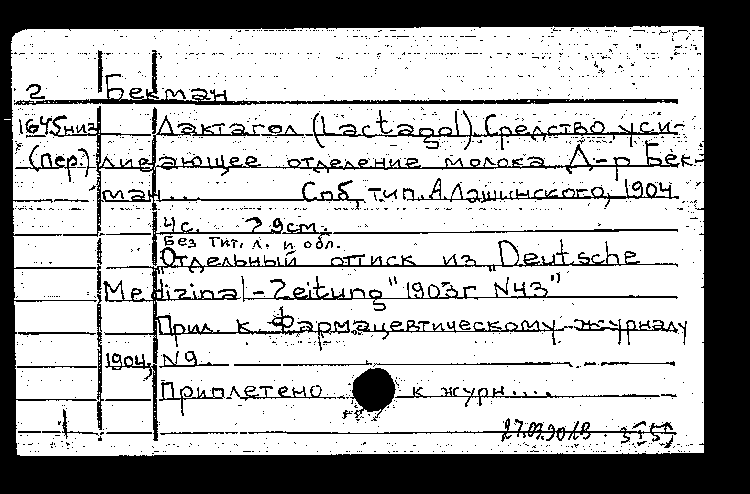 2 Бекман
1645низ Лактагол (Lactagol). Средство, уси-
(пер.) ливающее отделение молока Д-р Бек-
ман... Спб, тип. А. Лашинского, 1904.
4 с. 29 см.
Без тит. л. и обл.
"Отдельный оттиск из "Deutsche
Medizinal-Zeitung" 1903г. N43"
Прил. к Фармацевтическому журналу
1904, N9
Приплетено к журн....